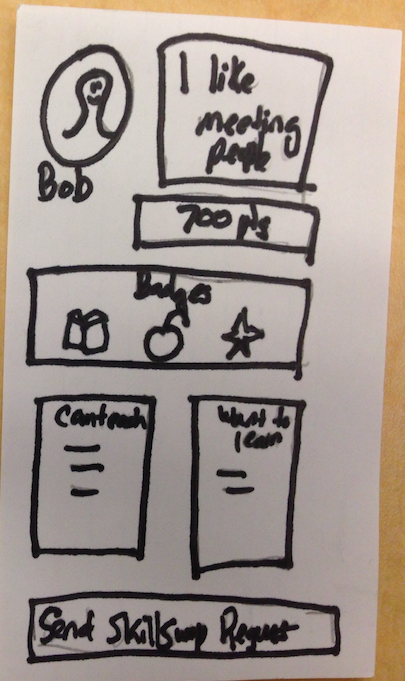 I like
meeting
people
Bob
700 pts
Badges
Can teach
Want to
learn
Send SkillSwap Request